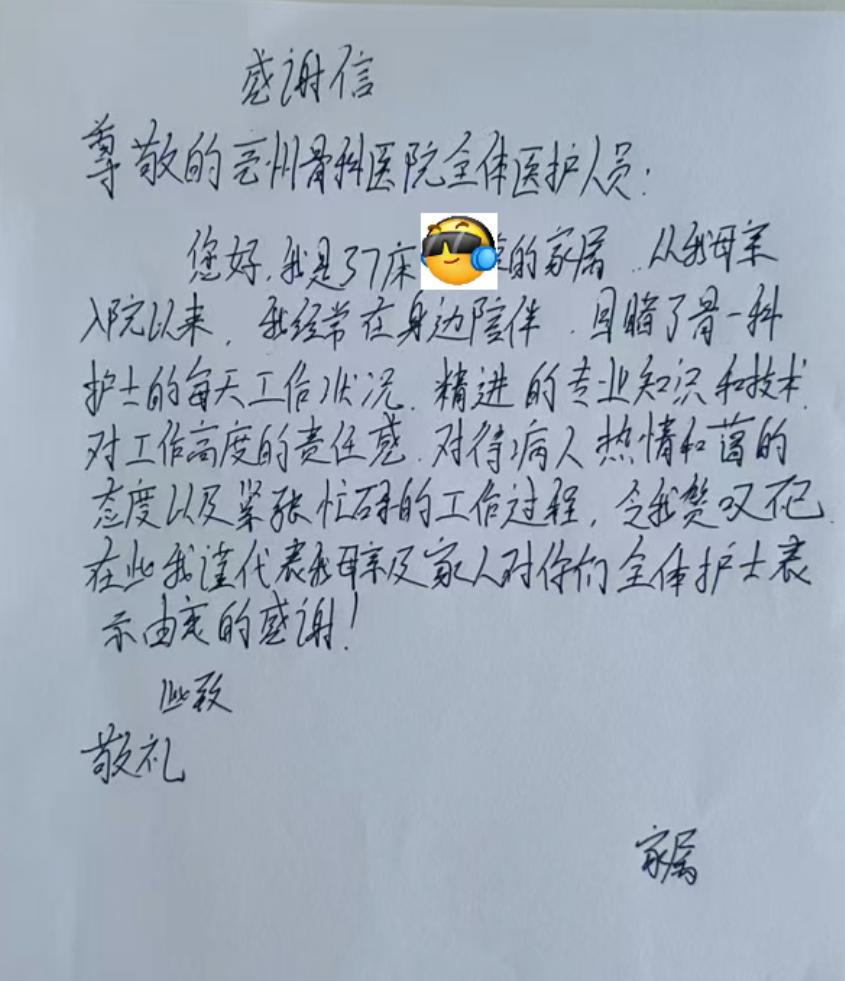 感谢信
尊敬的亳州骨科医院全体医护人员:
您好,我是37床的家属,从我母亲
入院以来,我经常在身边陪伴,目睹了骨一科
护士的每天工作状况,精进的专业知识和技术,
对工作高度的责任感,对待病人热情和蔼的
态度以及紧张忙碌的工作过程,令我赞叹不已.
在此我谨代表我母亲及家人对你们全体护士表
示由衷的感谢!
此致
敬礼
家属